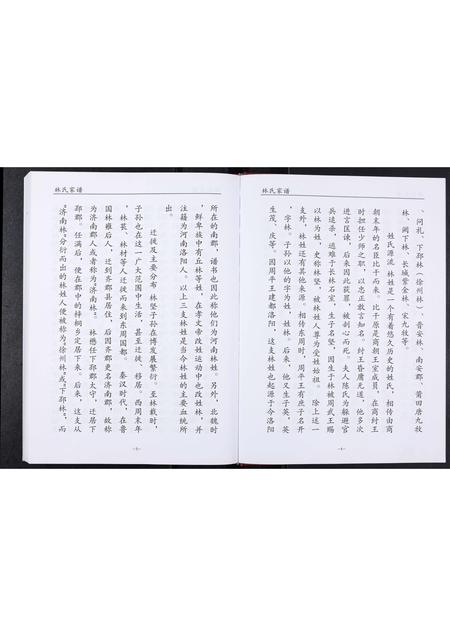 林氏家谱
、问礼、下邳林（徐州林）、晋安林、南安郡、莆田唐九牧
林、阙下林、长城紫金林、宋九牧等。
姓氏源流 林姓是一个有着悠久历史的姓氏，相传由商
朝末年的名臣比干而来。比干原是商朝王室成员，在商纣王
时担任少师之职，以忠正敢言知名。纣王昏庸无道，他多次
进言匡谏，后来因此获罪，被剖心而死。夫人陈氏为躲避官
兵追杀，逃难于长林石室，生子名坚，因生于林被周武王赐
以林为姓，史称林坚，被林姓人尊为受姓始祖。 除上述一
支外，林姓还有其他来源。相传东周时，周平王有庶子名开
，字林。子孙以他的字为姓，姓林。后来，他又生子英，英
生茂、庆等。因周平王建都洛阳，这支林姓也起源于今洛阳
-4-
林氏家谱
所在的南郡，谱书也因此称他们为河南林。另外，北魏时
，鲜卑族中有丘林等姓，在孝文帝改姓运动中也改姓林，并
注籍为河南洛阳人。以上三支林姓是当今林姓的主要血统所
出。
迁拨及主要分布 林坚子孙在博发展繁衍。至林载时，
子孙也在这一广大范围中生活，甚至迁拨、移居。西周末年
，林苌、林材等人迁拨而来到东周国都。 秦汉时代，在鲁
国林雍后人，迁到齐郡县居住，后因齐郡更名济南郡，故称
为济南郡人或者称为“济南林”。 林懋任下邳郡太守，迁居下
邳郡。任满后，便在郡中的梓桐乡定居下来。后来，这支从
“济南林”分衍而出的林姓人便被称为“徐州林”或“下邳林”。而
-5-